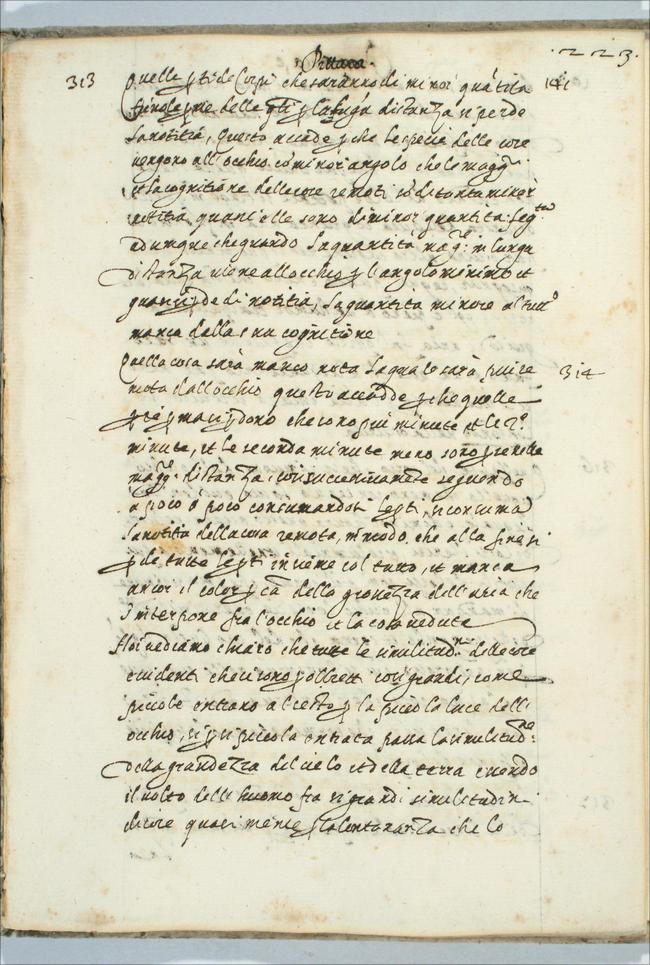 Pittura.
.223.
313
Quelle pti de Corpi che saranno di minor quãtita 141
delle pti p la luga distanza si perde
la notitia, questo accade p che le spetie delle cose
vengono all'occhio cõ minor angolo che le magg.
et la cognitione delle cose remoti è di tanta minor
notitia quanto elle sono di minor quantita: seg.ta
adunque che quando la quantità mag.re in lunga
distanza viene all occhio p l'angolo minimo et
quasi pde di notitia, la quantita minore al tutt.o
manca della sua cognitione
Quella cosa sarà manco nota la quale sarà piu re 314
mota dall occhio questo accade p che quelle
pti p ma si pdono che sono piu minute et le 2.e
minute, et le seconda minute meno sono pse nella
magg.re distanza, cosi successivamẽte seguendo
à poco à poco consumandosi le pti, si consuma
la notitia della cosa remota, in modo che alla fine si
pde tutte le pti insieme col tutto, et manca
ancor il color p cã della grossezza dell'aria che
s'interpone fra l'occhio et la cosa veduta
Noi vediamo chiaro che tutte le similitud.ni delle cose
evidenti che ci sono p obbietto cosi grandi, come
piccole entrano al senso p la piccola luce dell
occhio, si p si piccola entrata passa la similitud.ne
della grandezza del cielo et della terra essendo
il volto dell huomo fra si grandi similitudini
di cose quasi niente p la lontananza che lo